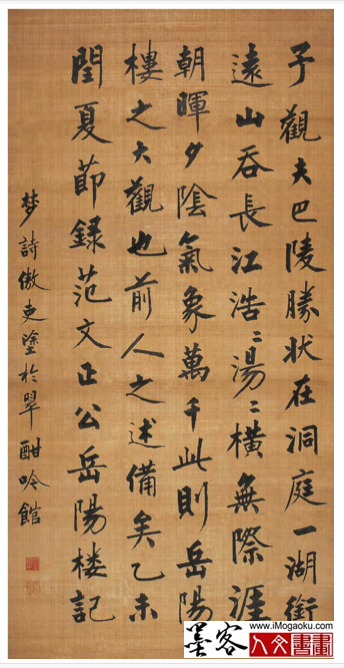 予觀夫巴陵勝狀在洞庭一湖銜
遠山吞長江浩〻湯〻橫無際涯
朝暉夕陰氣象萬千此則岳陽
樓之大觀也前人之述備矣乙未
閏夏節録范文正公岳陽楼記
梦詩傲吏塗於翠酣吟館
www.iMogaoku.com
墨客
人文書畫